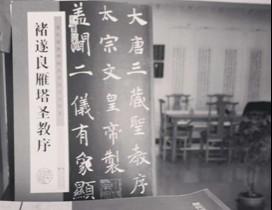 褚遂良雁塔圣教序
大唐三藏聖教序
太宗文皇帝製
盖聞二儀有象顯